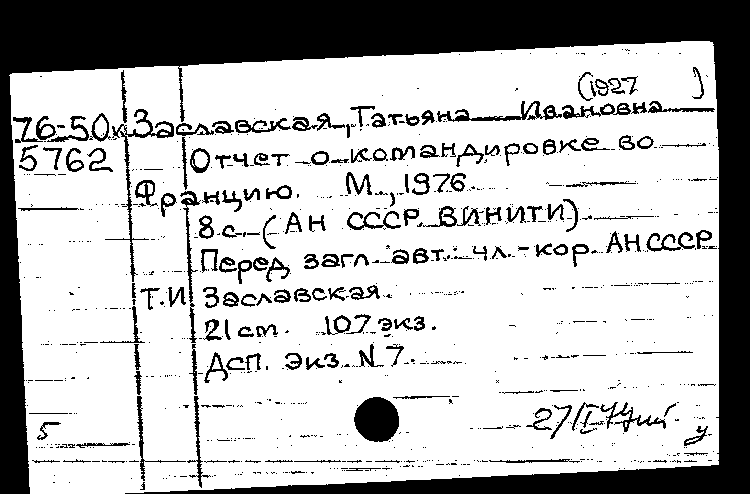 (1927 )
76-50к Заславская, Татьяна Ивановна
5762 Отчет о командировке во
Францию. М., 1976.
8 с. (АН СССР. ВИНИТИ).
Перед загл. авт.: чл.-кор. АН СССР
Т.И. Заславская.
21 ст. 107 экз.
Дсп. Экз. N 7.
5 27/I
у